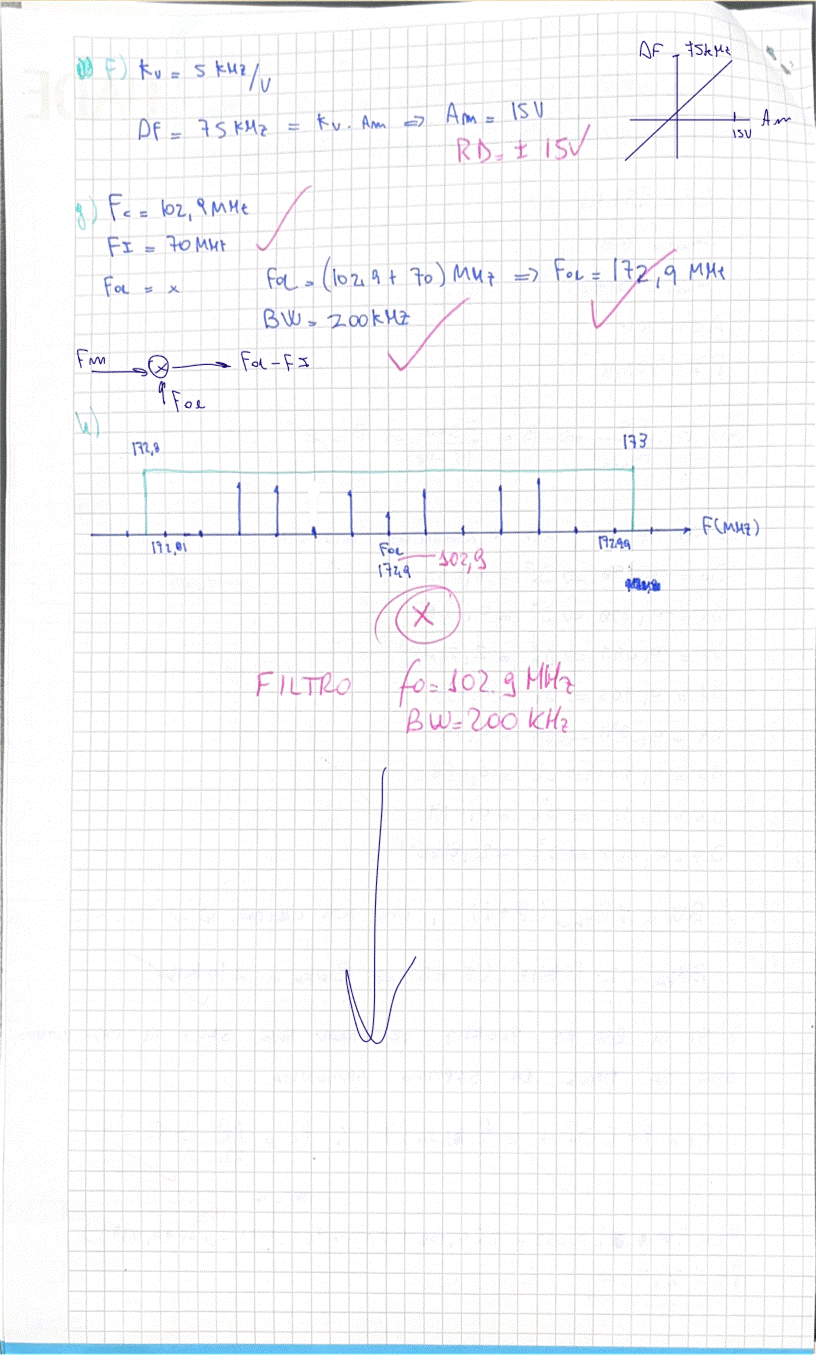 F) Kv = 5 KHz/V
DF = 75 KHz = Kv. Am => Am = 15V
RD = ± 15V
DF 75KHz
15V Am
g) Fc = 102,9 MHz
FI = 70 MHz
Fol = x Fol = (102,9 + 70) MHz => Fol = 172,9 MHz
BW = 200 KHz
Fm x Fol - FI
Fol
h)
172,8 173
172,81 Fol 172,99 F(MHz)
172,9 102,9
X
FILTRO fo = 102.9 MHz
BW = 200 KHz